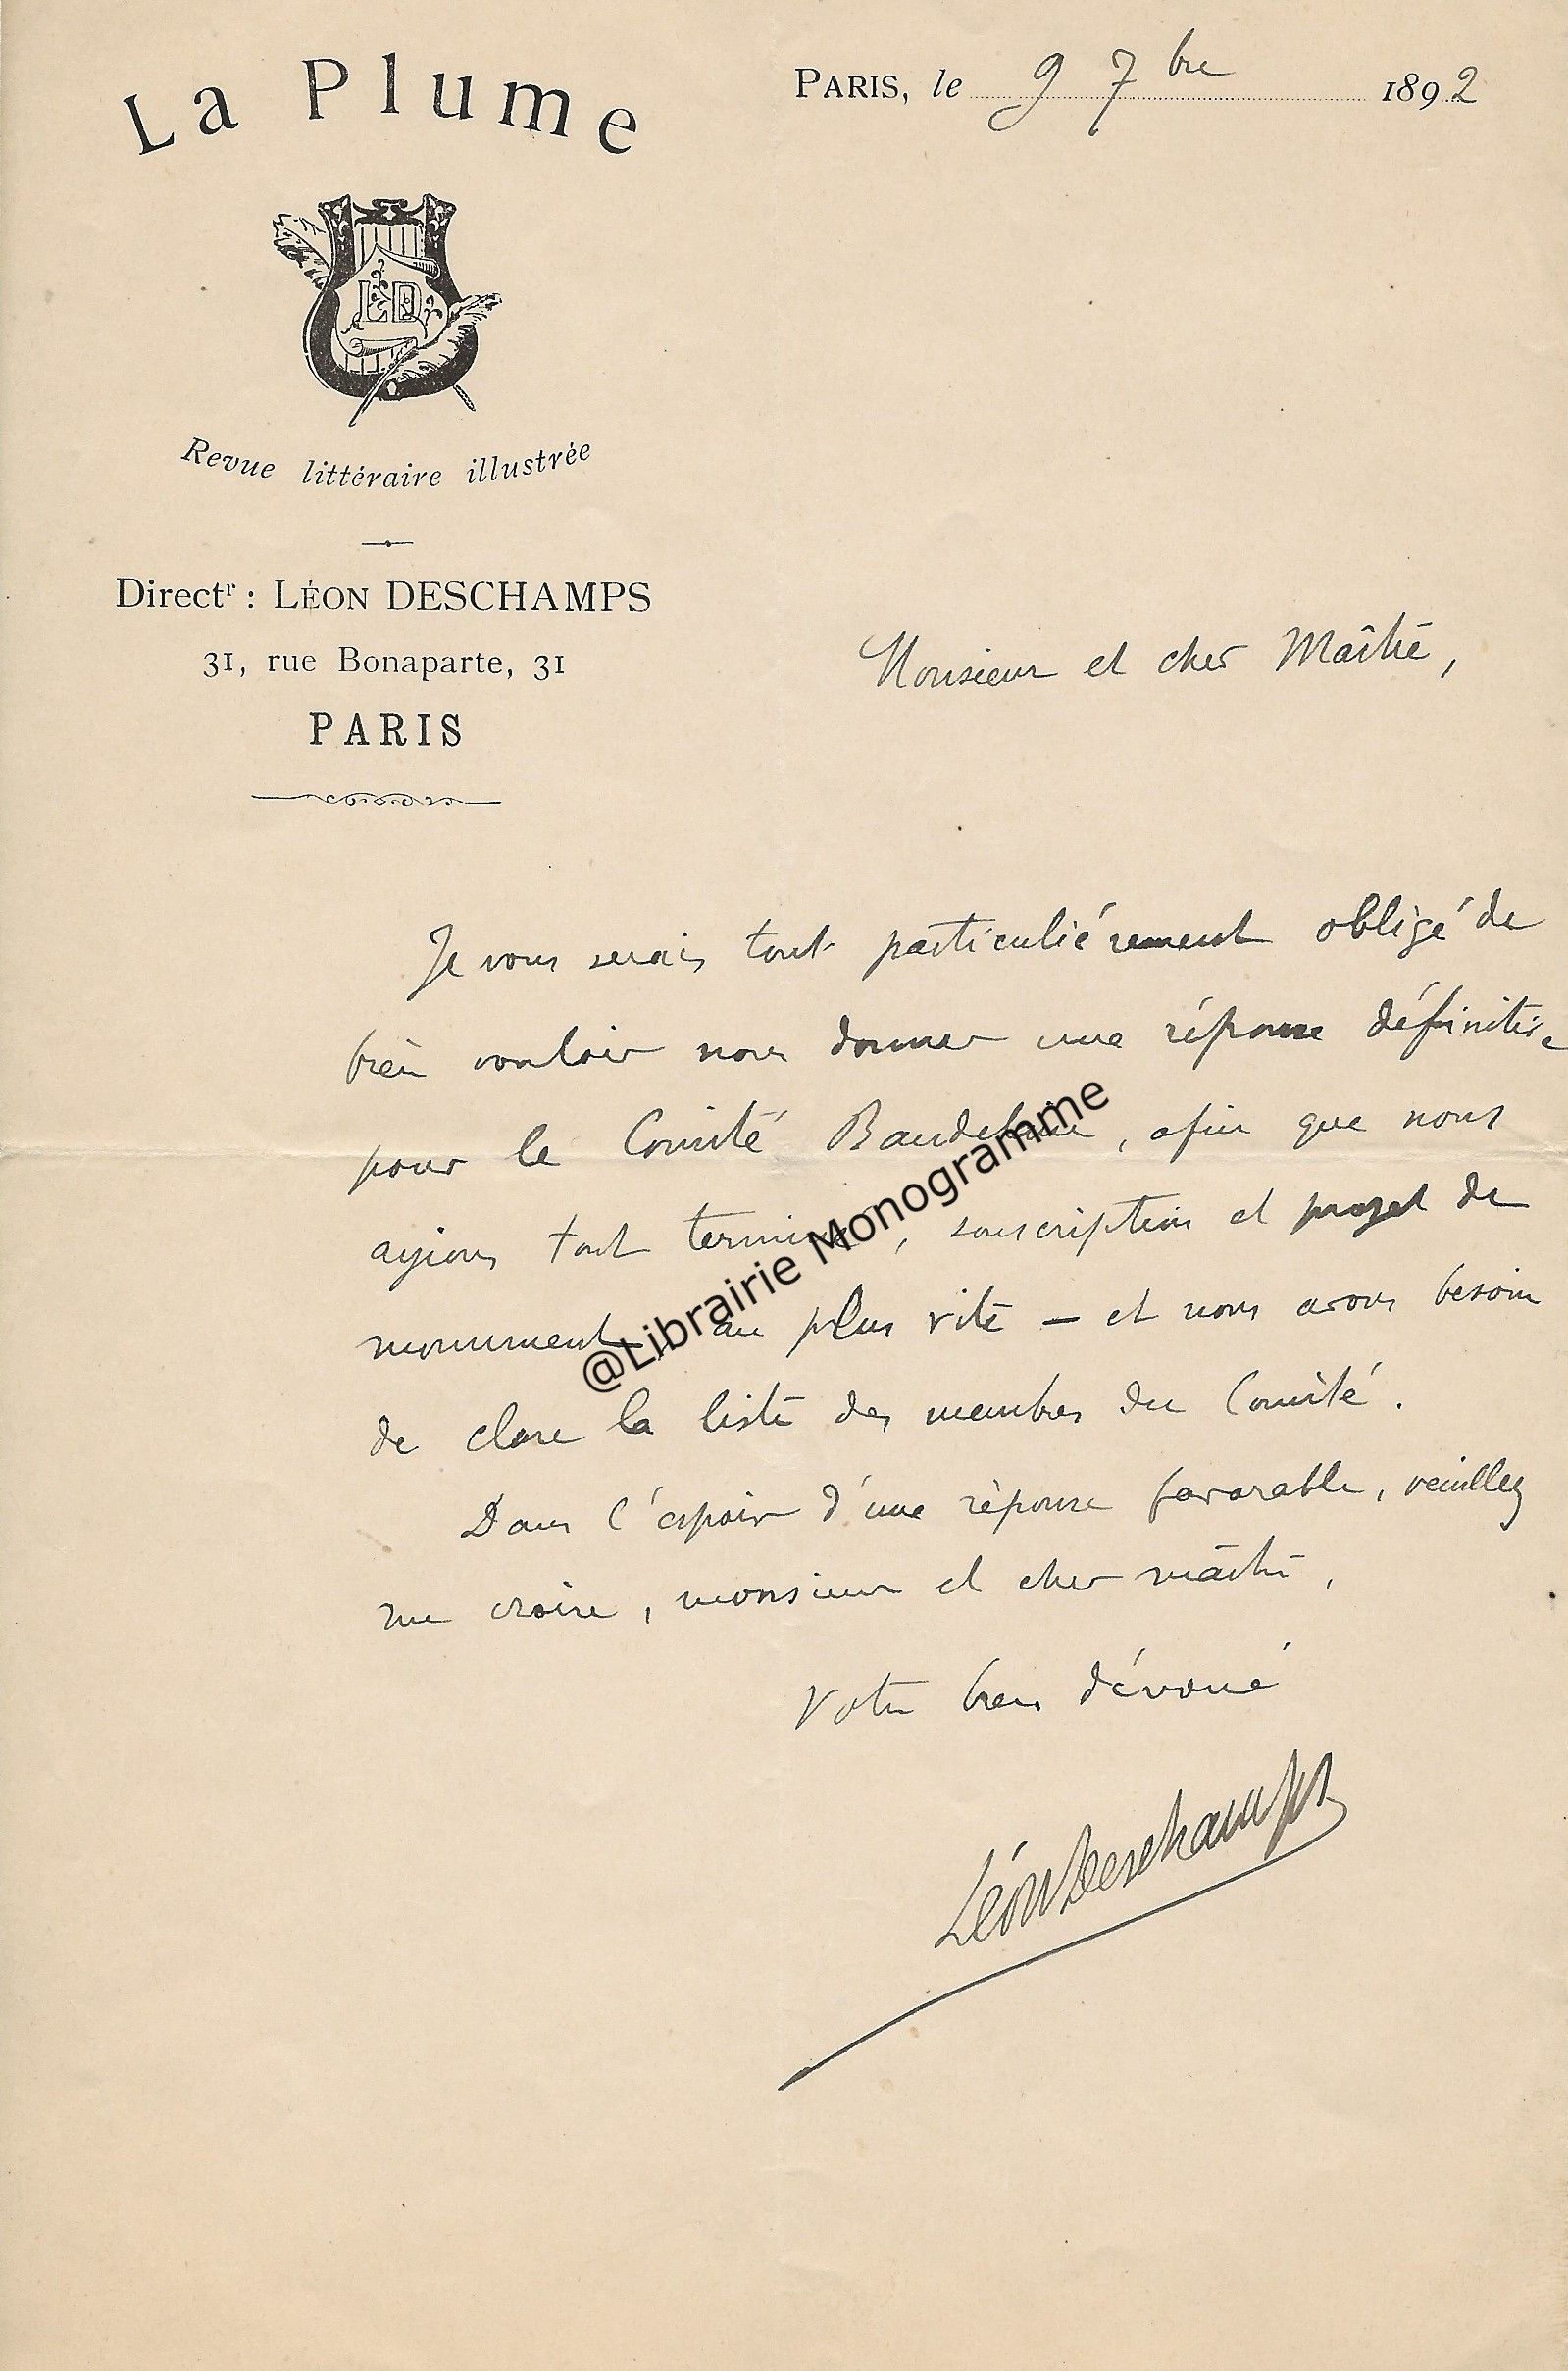 La Plume
PARIS, le 9 7bre 1892
LD
Revue littéraire illustrée
Directr : LÉON DESCHAMPS
31, rue Bonaparte, 31
PARIS
Monsieur et cher Maître,
Je vous serais tout particuliérement obligé de
bien vouloir nous donner une réponse définitive
pour le Comité Baudelaire, afin que nous
ayions tout terminé, souscription et projet de
monument, au plus vite — et nous avons besoin
de clore la liste des membres du Comité.
Dans l'espoir d'une réponse favorable, veuillez
me croire, monsieur et cher maître,
Votre bien dévoué
Léon Deschamps
@Librairie Monogramme